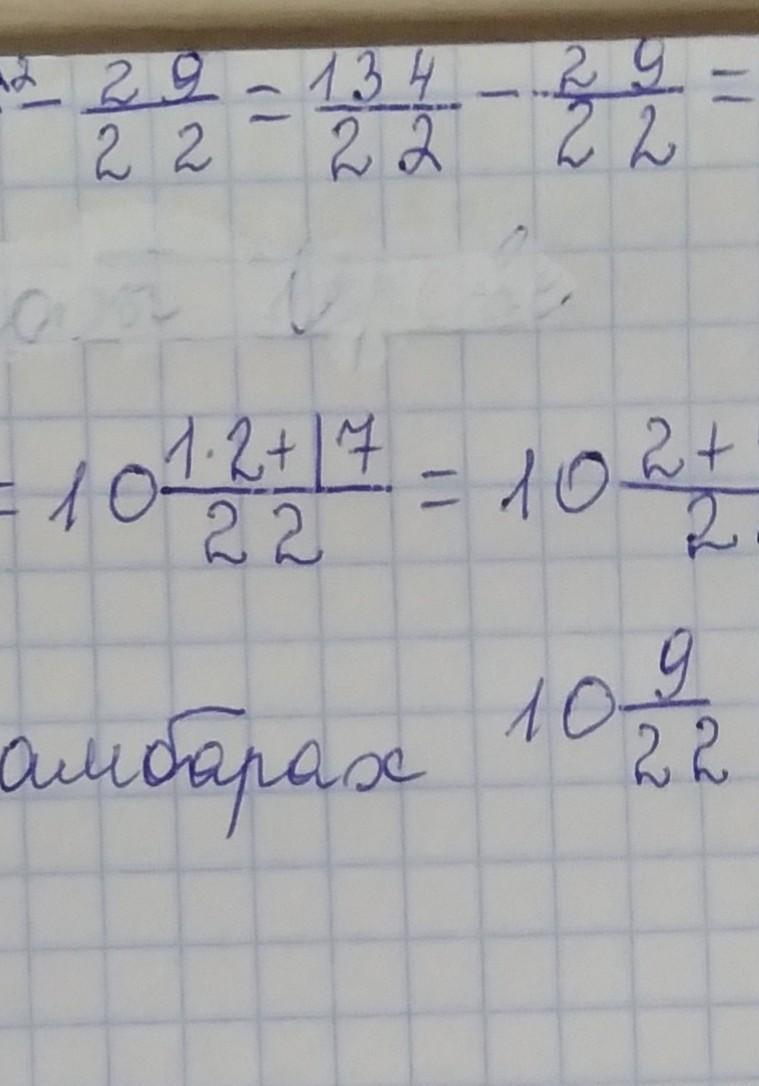 - 29/22 = 134/22 - 29/22 =
= 10 1·2+17/22 = 10 2+
амбарах 10 9/22